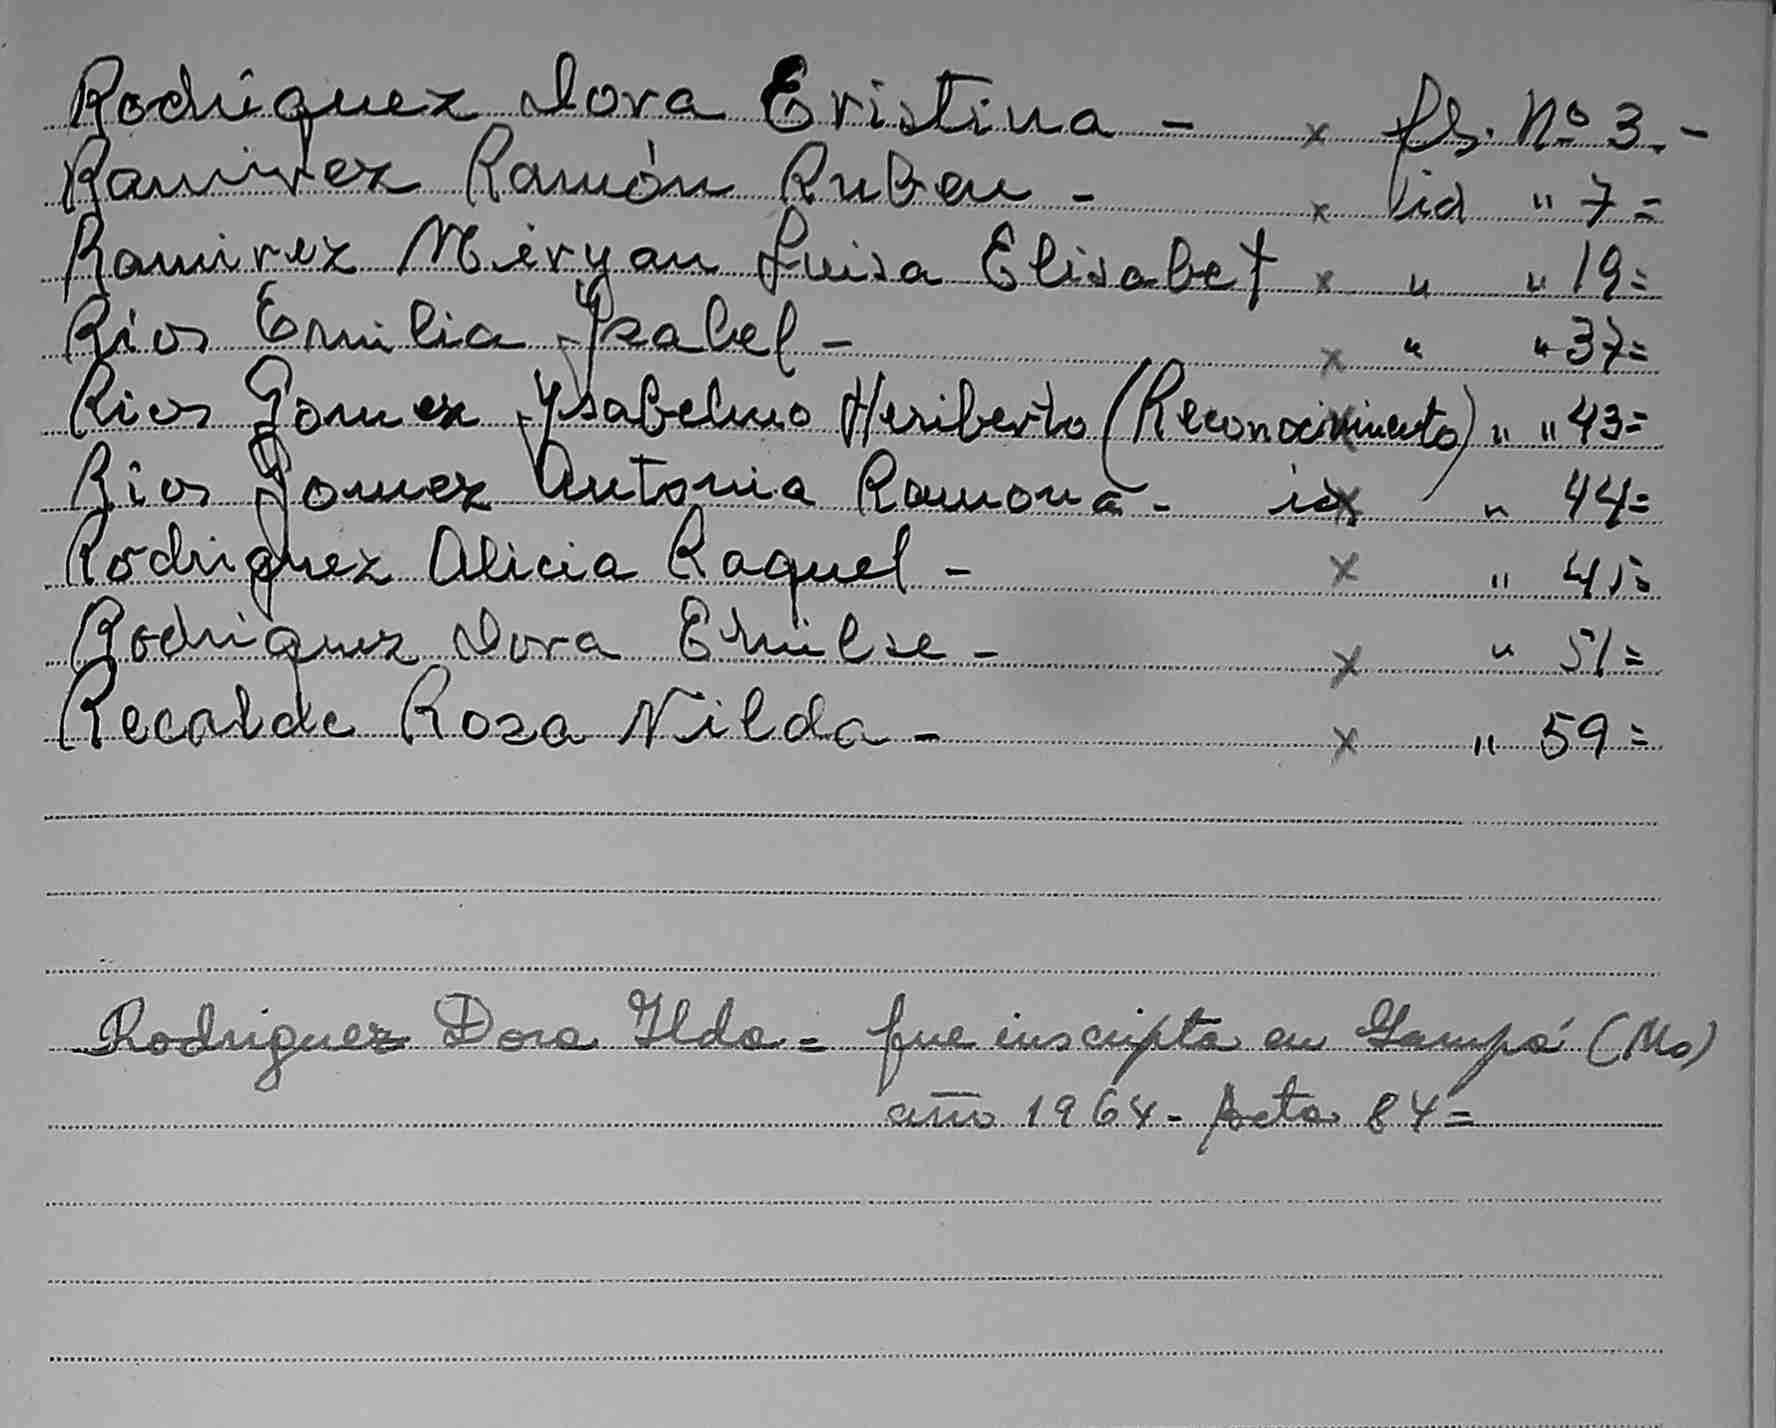 Rodriguez Dora Eristina - x fs. Nº 3.-
Ramirez Ramón Ruben - x id " 7=
Ramirez Méryan Luisa Elisabet x " " 19=
Rios Emilia Ysabel - x " " 37=
Rios Gomez Ysabelino Heriberto (Reconocimiento) " " 43=
Rios Gomez Antonia Ramona - id x " 44=
Rodriguez Alicia Raquel - x "
Rodriguez Dora Emilse - x " 51=
Recalde Rosa Nilda - x " 59=
Rodriguez Dora Ilda = fue inscripta en (Ms)
año 1964 - Acta 84=